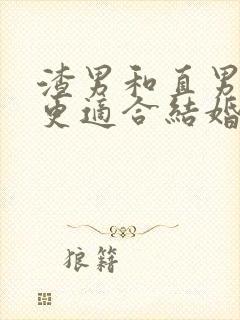 渣男和直男
更適合結婚
狼籍